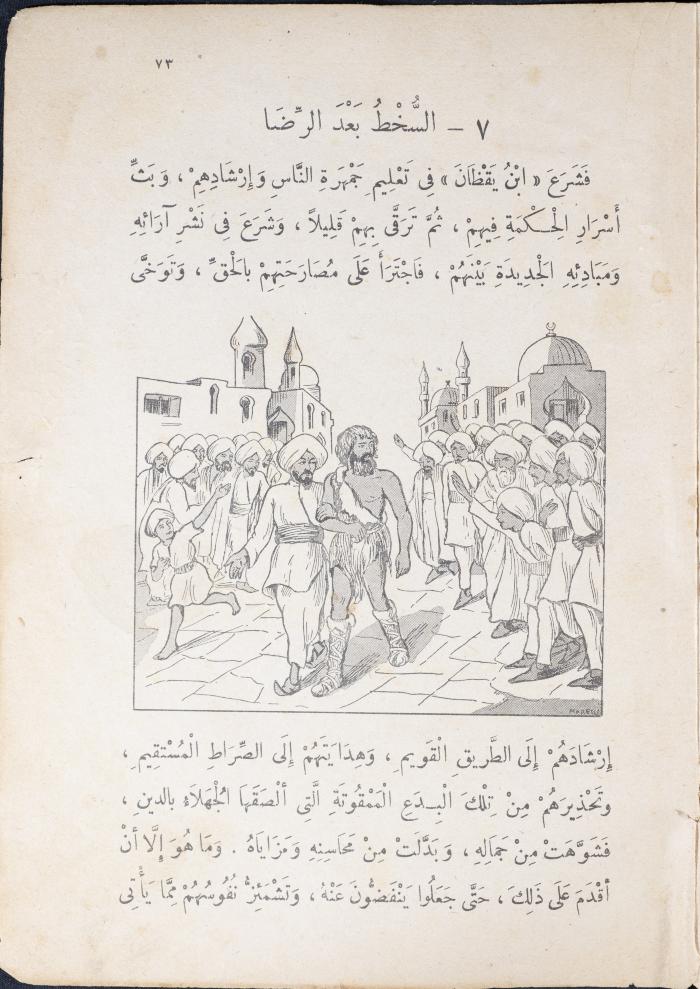 ٧٣
٧ – السُّخْطُ بَعْدَ الرِّضَا
فَشَرَعَ « ابْنُ يَقْظَانَ » فِى تَعْلِيمِ جَمْهَرَةِ النَّاسِ وَإِرْشَادِهِمْ ، وَبَثِّ
أَسْرَارِ الْحِكْمَةِ فِيهِمْ ، ثُمَّ تَرَقَّى بِهِمْ قَلِيلاً ، وَشَرَعَ فِى نَشْرِ آرَائِهِ
وَمَبَادِئِهِ الْجَدِيدَةِ بَيْنَهُمْ ، فَاجْتَرَأَ عَلَى مُصَارَحَتِهِمْ بِالْحَقِّ ، وَتَوَخَّى
MADELLI
إِرْشَادَهُمْ إِلَى الطَّرِيقِ الْقَوِيمِ ، وَهِدَايَتَهُمْ إِلَى الصِّرَاطِ الْمُسْتَقِيمِ ،
وَتَحْذِيرَهُمْ مِنْ تِلْكَ الْبِدَعِ الْمَمْقُوتَةِ الَّتِى أَلْصَقَهَا الْجُهَلَاءُ بِالدِّينِ ،
فَشَوَّهَتْ مِنْ جَمَالِهِ ، وَبَدَّلَتْ مِنْ مَحَاسِنِهِ وَمَزَايَاهُ . وَمَا هُوَ إِلَّا أَنْ
أَقْدَمَ عَلَى ذَلِكَ ، حَتَّى جَعَلُوا يَنْفَضُّونَ عَنْهُ ، وَتَشْمَئِزُّ نُفُوسُهُمْ مِمَّا يَأْتِى